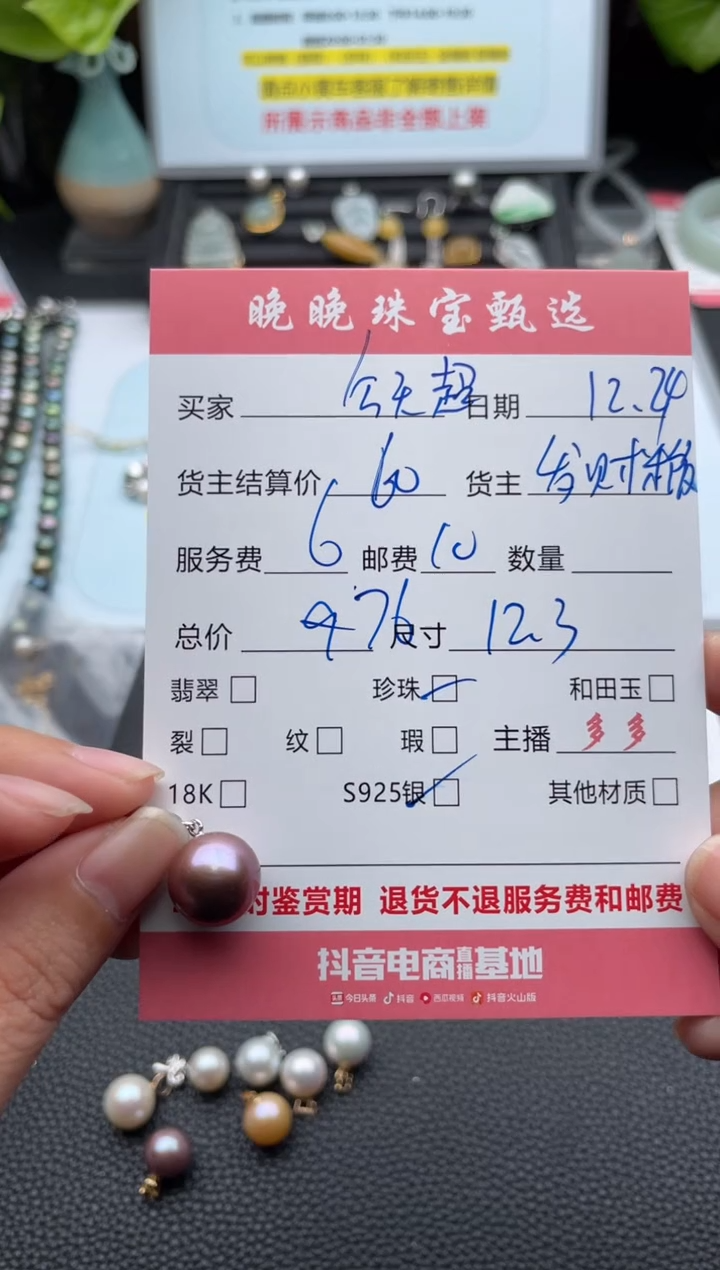 所展示商品非全部上架
晚晚珠宝甄选
买家 今天超 日期 12.24
货主结算价 60 货主 发财猴
服务费 6 邮费 10 数量
总价 976 尺寸 12.3
翡翠 珍珠 和田玉
裂 纹 瑕 主播 多多
18K S925银 其他材质
时鉴赏期 退货不退服务费和邮费
抖音电商直播基地
今日头条 抖音 西瓜视频 抖音火山版